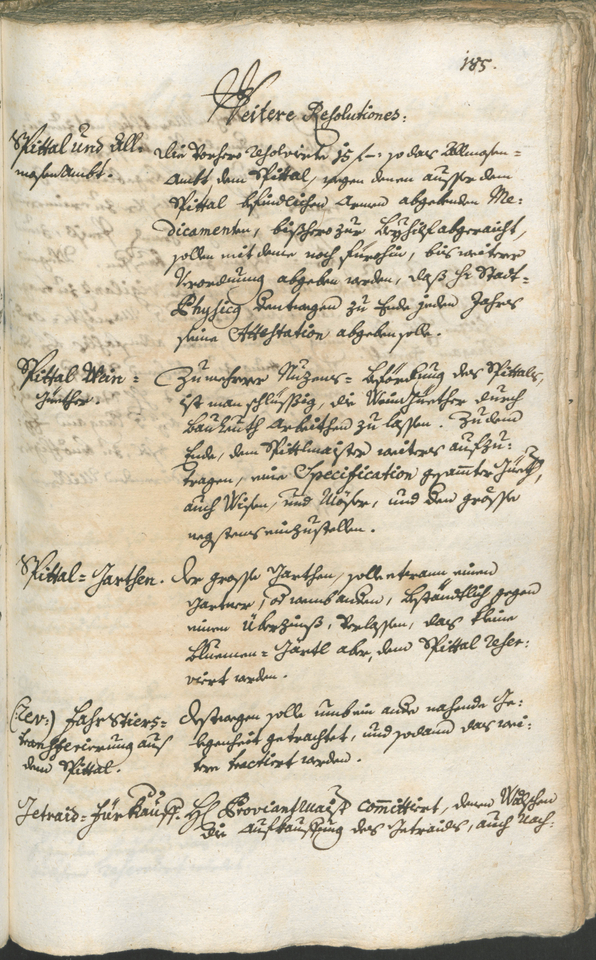 185.
Weitere Resolutiones:
Spittal und All-
mosen Ambt.
Die vorhero resolvierte 15 f –: so das Allmosen=
Ambt dem Spittal, wegen denen ausser dem
Spittal befindlichen Armen abgebenden Me:
dicamenten, bißhero zur Beyhilf abgereicht,
sollen mit deme noch fürohin, bis weitere
Verordnung abgeben werden, daß H: Stadt=
Physicus dentwegen zu Ende jeden Jahrs
seine Attestation abgeben solle.
Spittal Wein=
Güether.
Zu mehrer Nuzens=Beförderung des Spittals,
ist man schlüssig, die Weingüether durch
Bauleuth arbeithen zu lassen. Zu dem
Ende, dem Spittlmaister weiters aufzu:
tragen, eine Specification gesammter Güeth:
auch Wisen, und Möser, und den grösse
negstens einzustellen.
Spittal=Garthen.
Der grosse Garthen, solle etwann einem
Gartner, od wemb anderen, beständtlich gegen
einen Überzinß, verlassen, das kleine
Bluemen=Gärtl aber, dem Spittal reser:
viert werden.
(:rev:) Fahr Stiers=
transferierung aus
dem Spittal.
Destwegen solle umb ein andre nahende Ge:
legenheit getrachtet, und sodann das wei:
tere tractiert werden.
Getraid=Fürkauff.
H: Proviantmaister committiert, denen Wälschen
die Aufkauffung des Getraids, auch Nach: